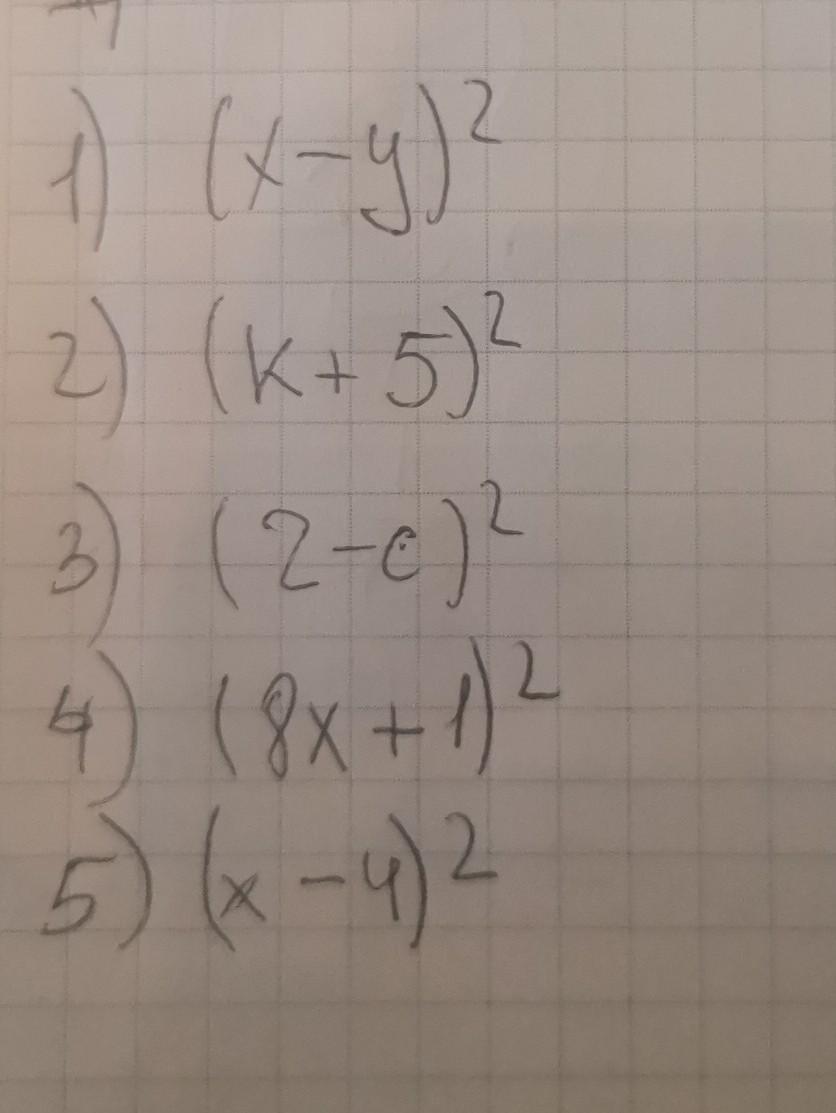 1) (x-y)²
2) (k+5)²
3) (2-c)²
4) (8x+1)²
5) (x-4)²